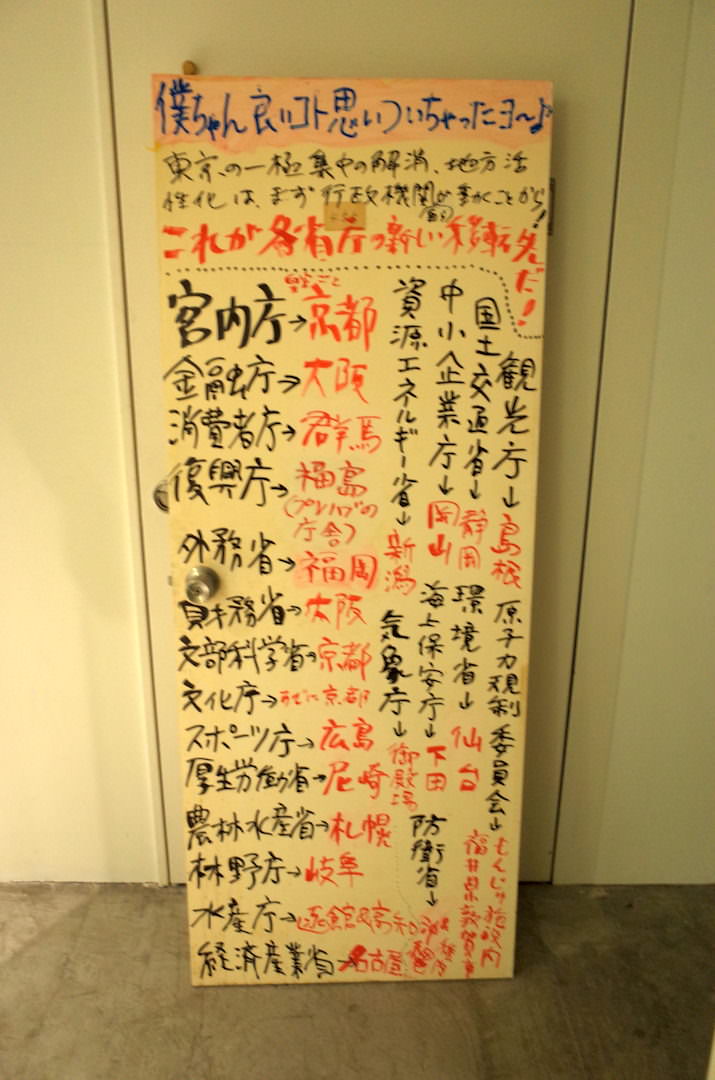 僕ちゃん良いコト思いついちゃったヨ～♪
東京の一極集中の解消、地方活
性化は、まず行政機関が動くことから!
これが各省庁の新しい移転先だ!
宮内庁→京都
金融庁→大阪
消費者庁→群馬
復興庁→福島
(プレハブの
庁舎)
外務省→福岡
財務省→大阪
文部科学省→京都
文化庁→すでに京都
スポーツ庁→広島
厚生労働省→尼崎
農林水産省→札幌
林野庁→岐阜
水産庁→函館&高知
経済産業省→名古屋
観光庁→島根
国土交通省→静岡
中小企業庁→岡山
資源エネルギー省→新潟
原子力規制委員会→もんじゅ施設内
福井県敦賀市
環境省→仙台
海上保安庁→下田
気象庁→御殿場
防衛省→